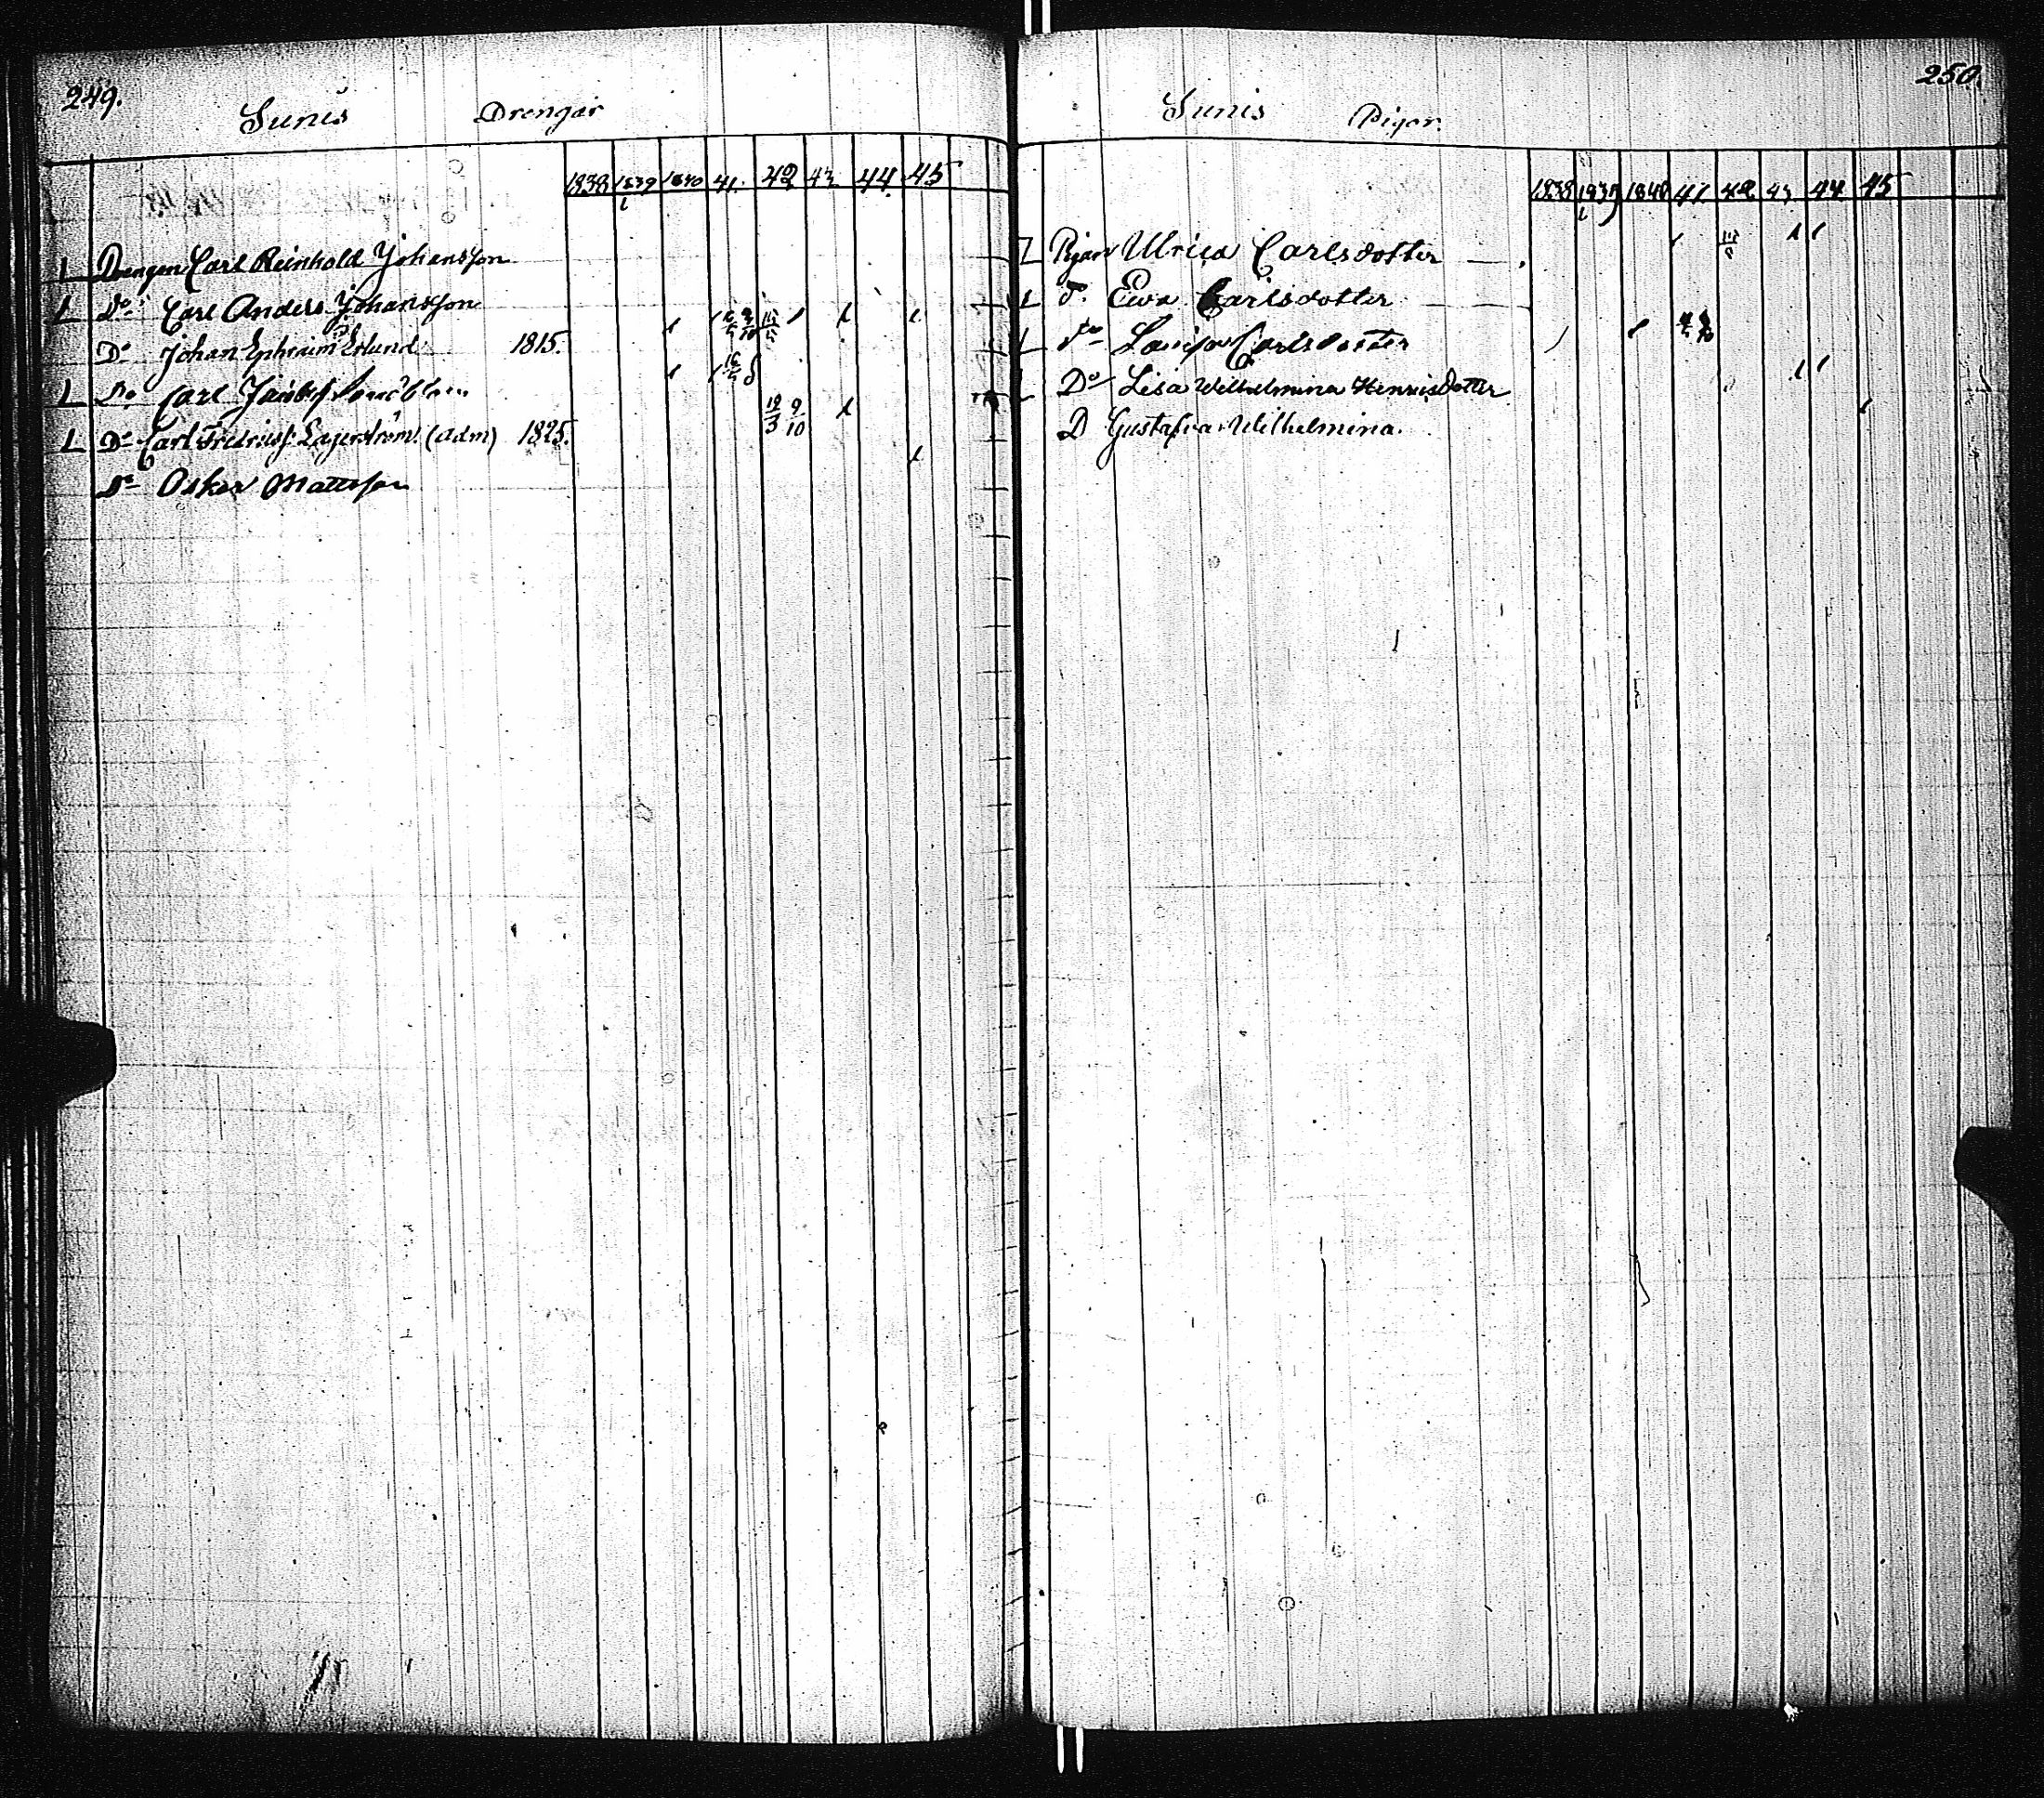 249.
Sunis Drengar
1838 1839 1840 41. 42 43 44 45
L Drengen Carl Reinhold Johansson
L Do Carl Anders Johansson
Do Johan Ephraim Erlund 1815.
L Do Carl Jacob
L Do Carl Fredrics. Lagerström (adm) 1825.
19/3 9/10
Do Oskar Mattsson
250.
Sunis Pigor.
1838 1839 1840 41 42 43 44 45
Pigan Ulrica Carlsdotter
L Do Ewa Carlsdotter
L Do Lovisa Carlsdotter
L Do Lisa Wilhelmina Henricsdotter
D Gustafva Wilhelmina.